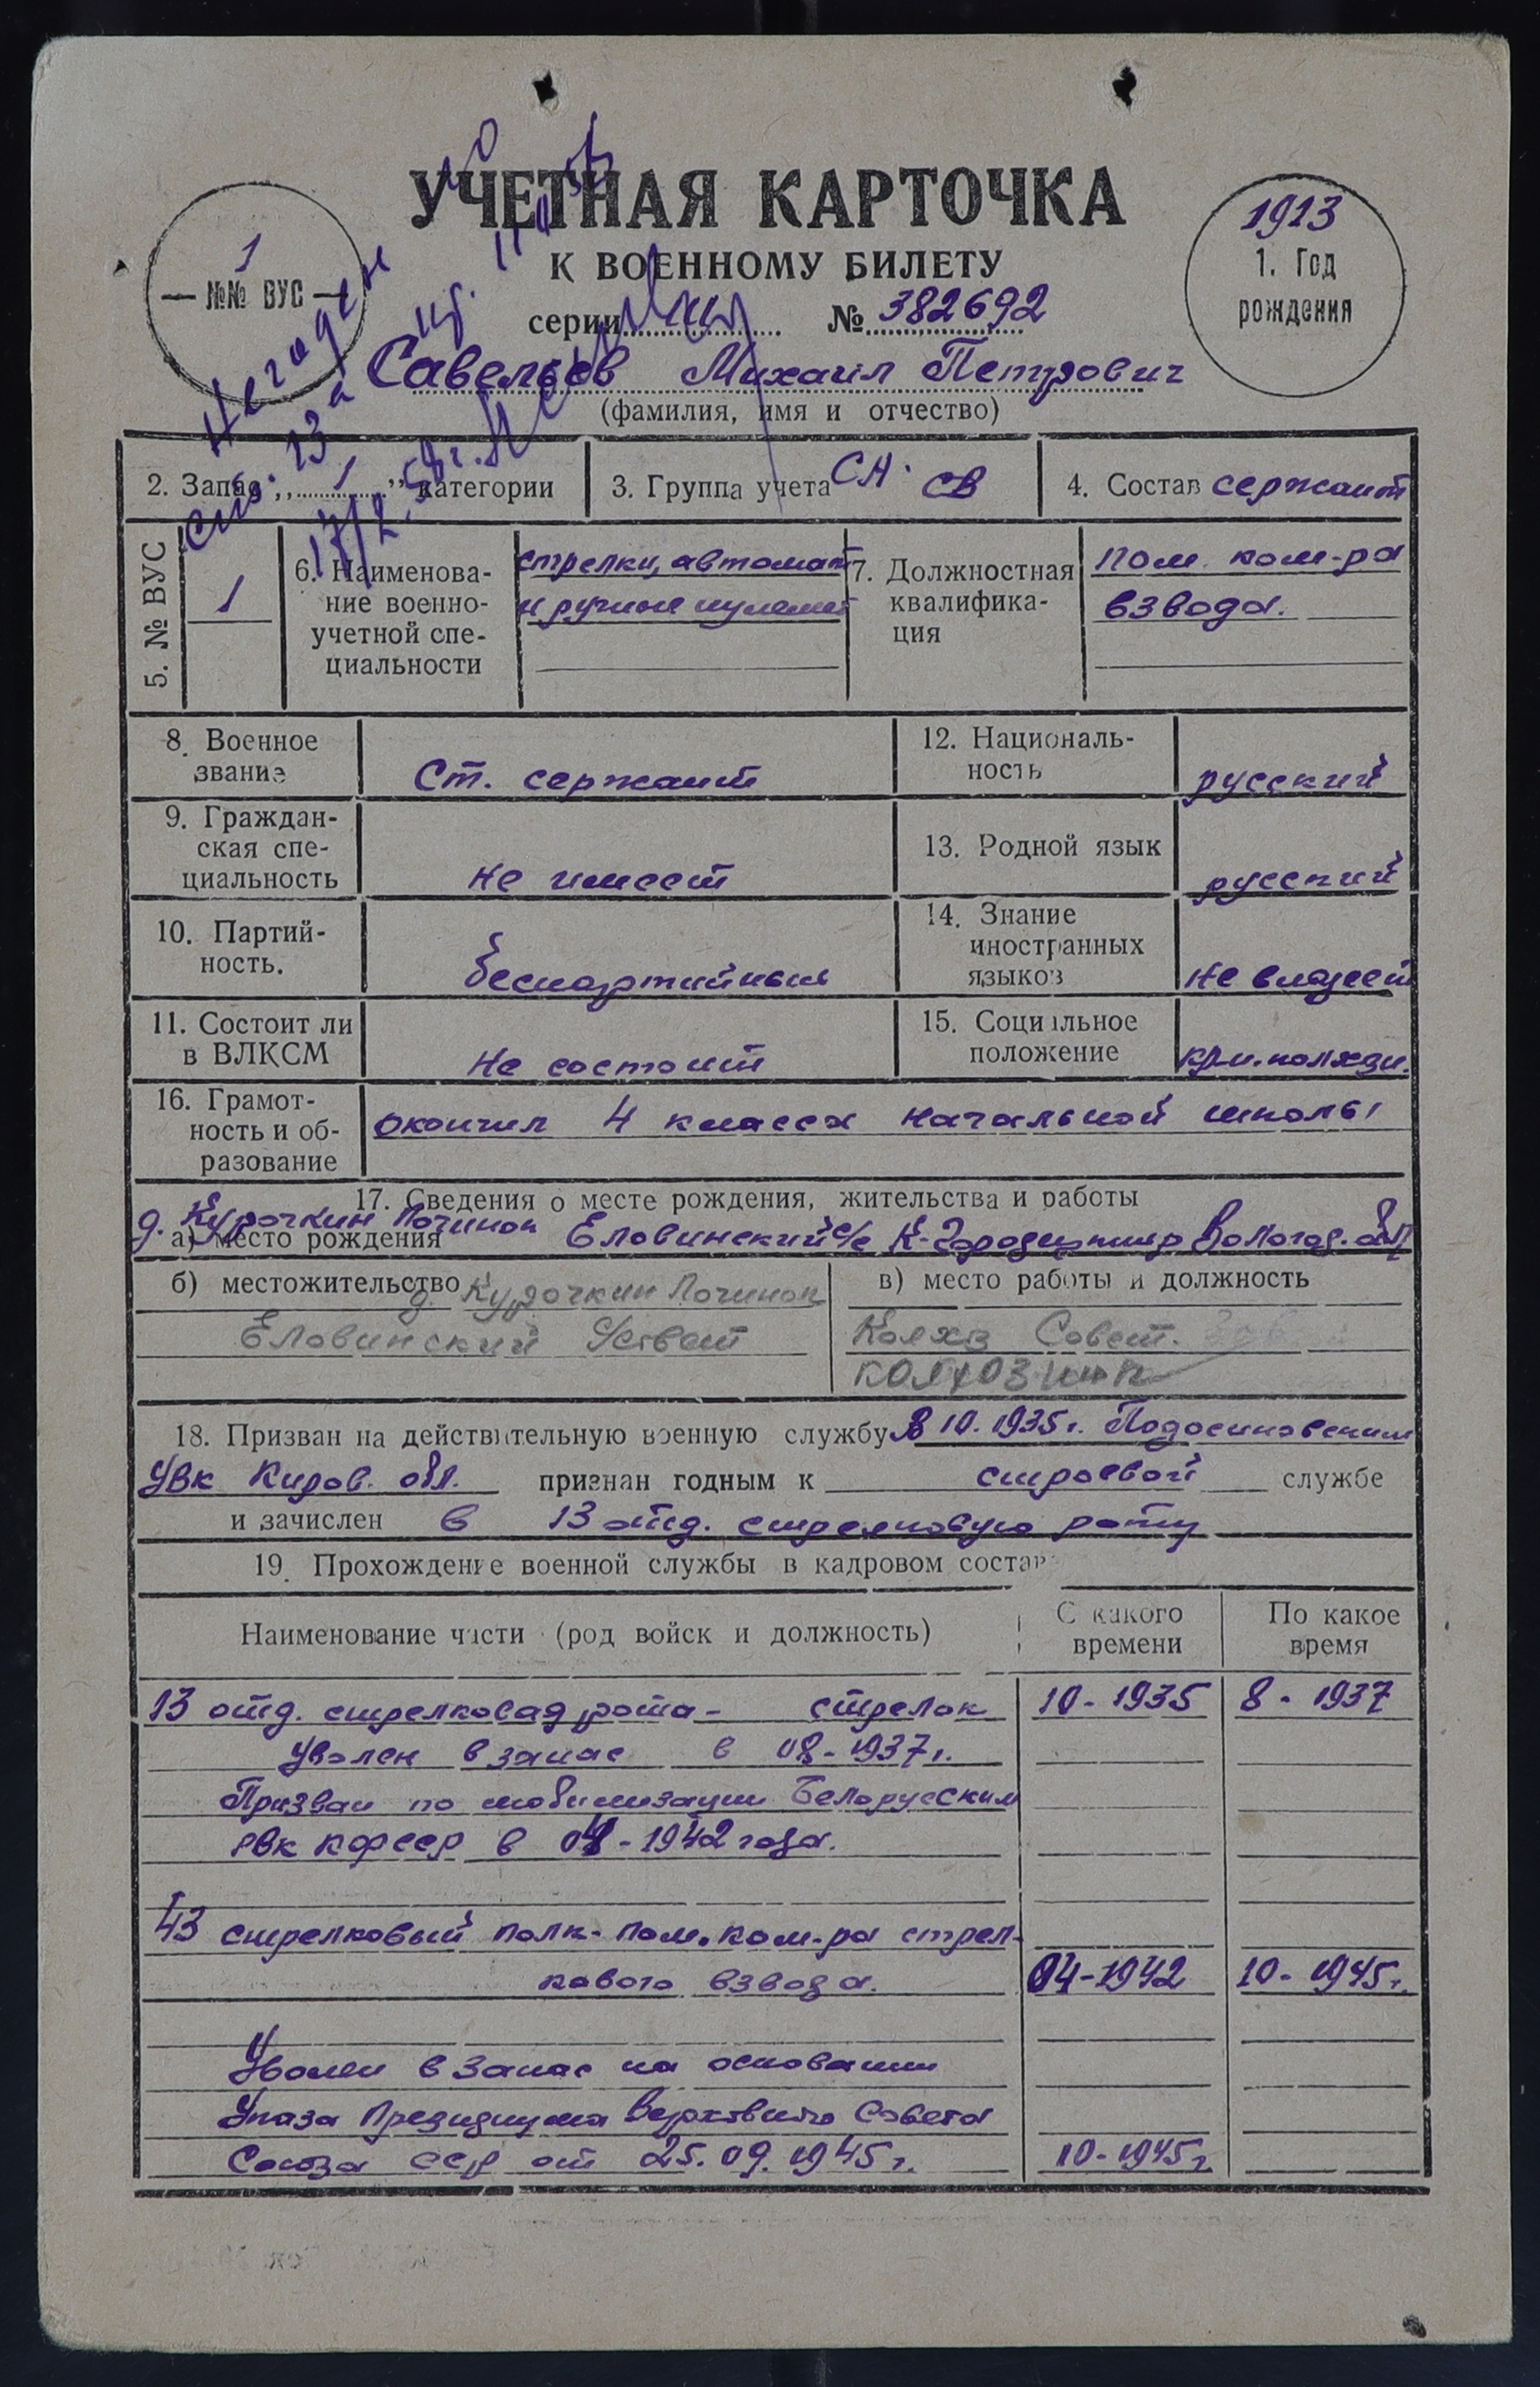 УЧЕТНАЯ КАРТОЧКА
К ВОЕННОМУ БИЛЕТУ
1
№№ ВУС
1913
1. Год
рождения
серии № 382692
Савельев Михаил Петрович
(фамилия, имя и отчество)
Негоден
ст. 13а
17/2.
2. Запас „ 1 ” категории
3. Группа учета СА. СВ
4. Состав сержант
5. № ВУС
1
6. Наименова-
ние военно-
учетной спе-
циальности
стрелки, автомат
и ручные пулемет
7. Должностная
квалифика-
ция
пом. ком-ра
взвода.
8. Военное
звание
Ст. сержант
12. Националь-
ность
русский
9. Граждан-
ская спе-
циальность
не имеет
13. Родной язык
русский
10. Партий-
ность.
беспартийный
14. Знание
иностранных
языков
не владеет
11. Состоит ли
в ВЛКСМ
Не состоит
15. Социальное
положение
16. Грамот-
ность и об-
разование
окончил 4 класса начальной школы
17. Сведения о месте рождения, жительства и работы
а) место рождения
д. Курочкин Починок Еловинский с/с К-Городецкий р Вологод. обл
б) местожительство д. Курочкин Починок
Еловинский с/совет
в) место работы и должность
Колхоз Совет.
колхозник
18. Призван на действительную военную службу В 10.1935г. Подосиновским
УВК Киров. обл. признан годным к строевой службе
и зачислен в 13 отд. стрелковую роту
19. Прохождение военной службы в кадровом составе
Наименование части (род войск и должность)
С какого
времени
По какое
время
13 отд. стрелковая рота - стрелок 10-1935 8-1937
Уволен в запас в 08-1937г.
Призван по мобилизации Беломорским
РВК КФССР в 04-1942 года.
43 стрелковый полк - пом. ком-ра стрел-
кового взвода. 04-1942 10-1945г.
Уволен в запас на основании
Указа Президиума Верховного Совета
Союза ССР от 25.09.1945г. 10-1945г.